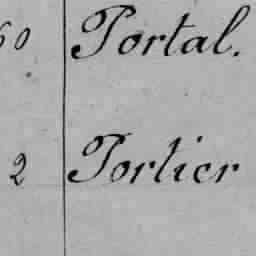 60 Portal.
2 Portier